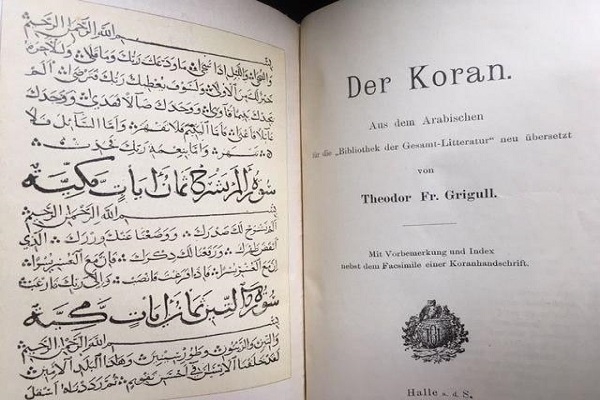 بسم الله الرحمن الرحيم
والضحى والليل اذا سجى ما ودعك ربك وما قلى وللاخرة
خير لك من الاولى ولسوف يعطيك ربك فترضى الم
يجدك يتيما فاوى ووجدك ضالا فهدى ووجدك
عائلا فاغنى فاما اليتيم فلا تقهر واما السائل فلا
تنهر واما بنعمة ربك فحدث
سورة الم نشرح ثمان ايات مكية
بسم الله الرحمن الرحيم
الم نشرح لك صدرك ووضعنا عنك وزرك الذي
انقض ظهرك ورفعنا لك ذكرك فان مع العسر يسرا
ان مع العسر يسرا فاذا فرغت فانصب والى ربك فارغب
سورة والتين ثمان ايات مكية
بسم الله الرحمن الرحيم
والتين والزيتون وطور سينين وهذا البلد الامين
لقد خلقنا الانسان في احسن تقويم ثم رددناه اسفل
Der Koran.
Aus dem Arabischen
für die „Bibliothek der Gesamt-Litteratur“ neu übersetzt
von
Theodor Fr. Grigull.
Mit Vorbemerkung und Index
nebst dem Facsimile einer Koranhandschrift.
Halle a. d. S.